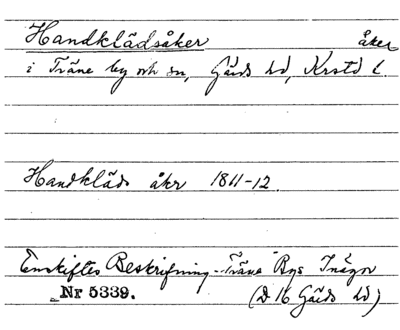 Handklädsåker åker
i Träne by och sn, Gärds hd, Krstd l.
Handkläds åkr 1811-12.
Enskiftes Beskrifning - Träne Bys Inägor
Nr 5339. (D 16 Gärds hd)